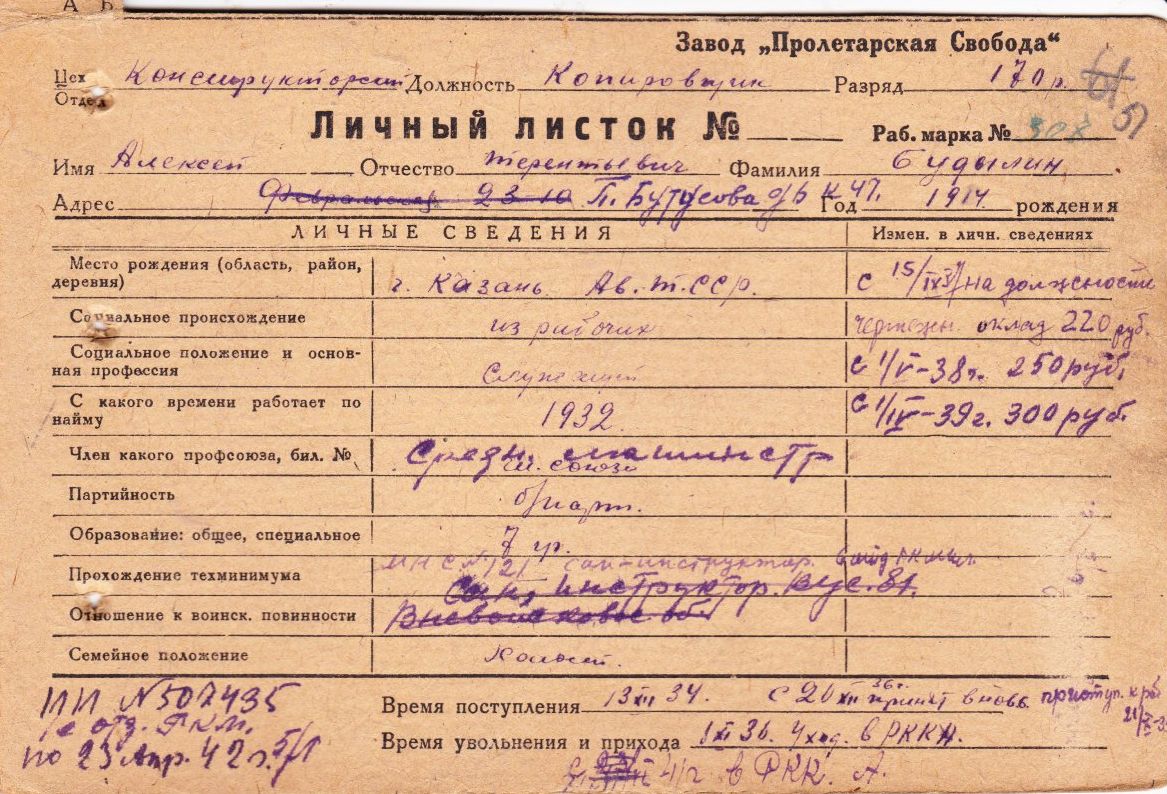 А Б
Завод „Пролетарская Свобода“
Цех Конструкторский Должность Копировщик Разряд 170 р.
Отдел
Личный листок №
Раб. марка №
Имя Алексей Отчество Терентьевич Фамилия Будылин
Адрес Февральская 23 10 П. Бутусова д 6 к 47. Год 1914 рождения
ЛИЧНЫЕ СВЕДЕНИЯ Измен. в личн. сведениях
Место рождения (область, район, деревня) г. Казань Ав. Т. ССР. с 15/IX 37 на должности
Социальное происхождение из рабочих чертежн. оклад 220 руб.
Социальное положение и основная профессия служащий с 1/V-38г. 250 руб.
С какого времени работает по найму 1932 с 1/IV-39г. 300 руб.
Член какого профсоюза, бил. № Средн. машинстр
ч. союза
Партийность б/парт.
Образование: общее, специальное 7 гр.
Прохождение техминимума сан-инструктор
Сан, инструктор. Вус. 81.
Отношение к воинск. повинности Вневойсковое об.
Семейное положение Холост.
ПП №507495
Время поступления 13 XII 34. с 20 XII 36г. принят вновь приступ. к раб
21/X-3
с отз. РКМ.
Время увольнения и прихода 1 XI 36. Уход. в РККА.
по 23 Апр. 42 г. Б/Г
4/г в РКК. А.